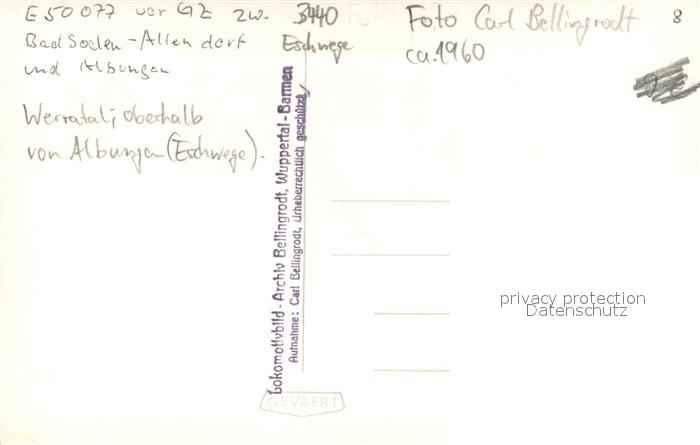 E 50 077 vor GZ zw.
Bad Soden-Allendorf
und Albungen
Werratal; oberhalb
von Albungen (Eschwege).
3440
Eschwege
Foto Carl Bellingrodt
ca. 1960
8
Lokomotivbild-Archiv Bellingrodt, Wuppertal-Barmen
Aufnahme: Carl Bellingrodt, Urheberrechtlich geschützt
privacy protection
Datenschutz
GEVAERT